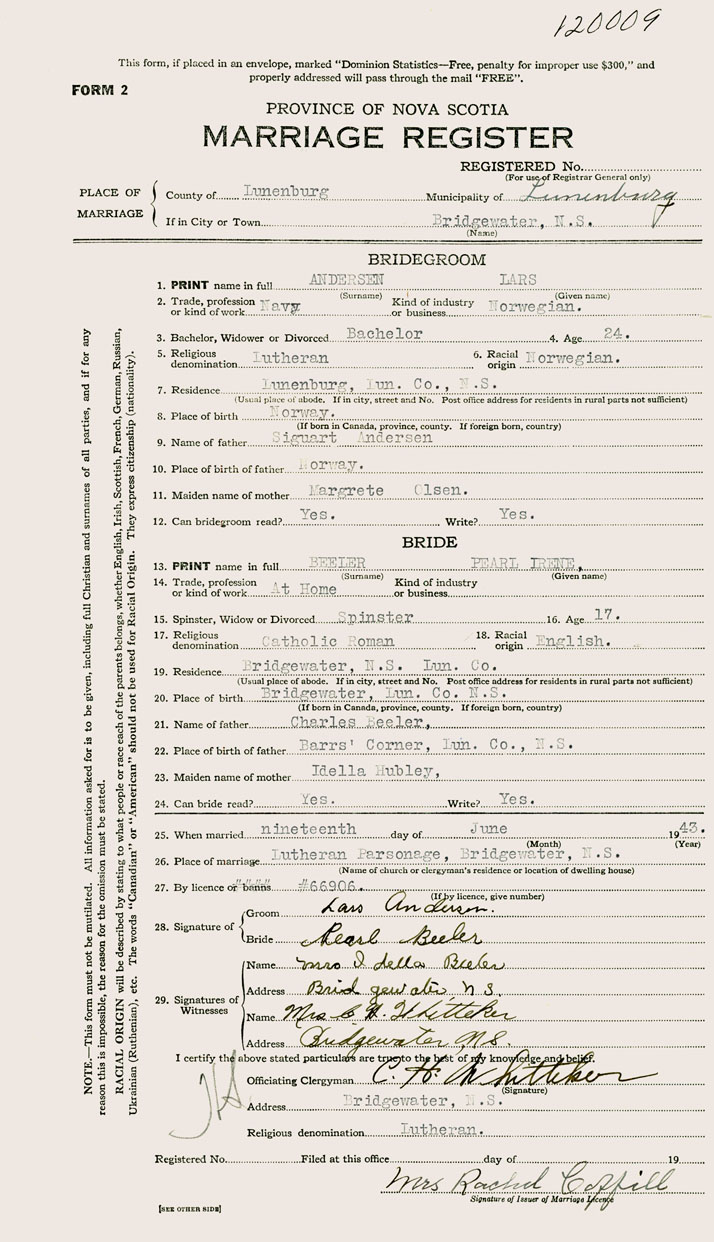 120009
This form, if placed in an envelope, marked "Dominion Statistics—Free, penalty for improper use $300," and
properly addressed will pass through the mail "FREE".
FORM 2
PROVINCE OF NOVA SCOTIA
MARRIAGE REGISTER
REGISTERED No.
(For use of Registrar General only)
PLACE OF MARRIAGE
County of Lunenburg Municipality of Lunenburg
If in City or Town Bridgewater, N.S.
(Name)
BRIDEGROOM
1. PRINT name in full ANDERSEN LARS
(Surname) (Given name)
2. Trade, profession or kind of work Navy Kind of industry or business Norwegian.
3. Bachelor, Widower or Divorced Bachelor 4. Age 24.
5. Religious denomination Lutheran 6. Racial origin Norwegian.
7. Residence Lunenburg, Lun. Co., N.S.
(Usual place of abode. If in city, street and No. Post office address for residents in rural parts not sufficient)
8. Place of birth Norway.
(If born in Canada, province, county. If foreign born, country)
9. Name of father Siguart Andersen
10. Place of birth of father Norway.
11. Maiden name of mother Margrete Olsen.
12. Can bridegroom read? Yes. Write? Yes.
BRIDE
13. PRINT name in full BEELER PEARL IRENE,
(Surname) (Given name)
14. Trade, profession or kind of work At Home Kind of industry or business
15. Spinster, Widow or Divorced Spinster 16. Age 17.
17. Religious denomination Catholic Roman 18. Racial origin English.
19. Residence Bridgewater, N.S. Lun. Co.
(Usual place of abode. If in city, street and No. Post office address for residents in rural parts not sufficient)
20. Place of birth Bridgewater, Lun. Co. N.S.
(If born in Canada, province, county. If foreign born, country)
21. Name of father Charles Beeler,
22. Place of birth of father Barrs' Corner, Lun. Co., N.S.
23. Maiden name of mother Idella Hubley,
24. Can bride read? Yes. Write? Yes.
25. When married nineteenth day of June 1943.
(Month) (Year)
26. Place of marriage Lutheran Parsonage, Bridgewater, N.S.
(Name of church or clergyman's residence or location of dwelling house)
27. By licence or banns #66906.
(If by licence, give number)
28. Signature of
Groom Lars Andersen.
Bride Pearl Beeler
29. Signatures of Witnesses
Name Mrs Idella Beeler
Address Bridgewater N S
Name Mrs C H Whitteker
Address Bridgewater N.S.
I certify the above stated particulars are true to the best of my knowledge and belief.
Officiating Clergyman C. H. Whitteker
(Signature)
Address Bridgewater, N.S.
Religious denomination Lutheran.
Registered No. Filed at this office day of 19
Mrs Rachel
Signature of Issuer of Marriage Licence
[SEE OTHER SIDE]
NOTE.—This form must not be mutilated. All information asked for is to be given, including full Christian and surnames of all parties, and if for any
reason this is impossible, the reason for the omission must be stated.
RACIAL ORIGIN will be described by stating to what people or race each of the parents belongs, whether English, Irish, Scottish, French, German, Russian,
Ukrainian (Ruthenian), etc. The words "Canadian" or "American" should not be used for Racial Origin. They express citizenship (nationality).